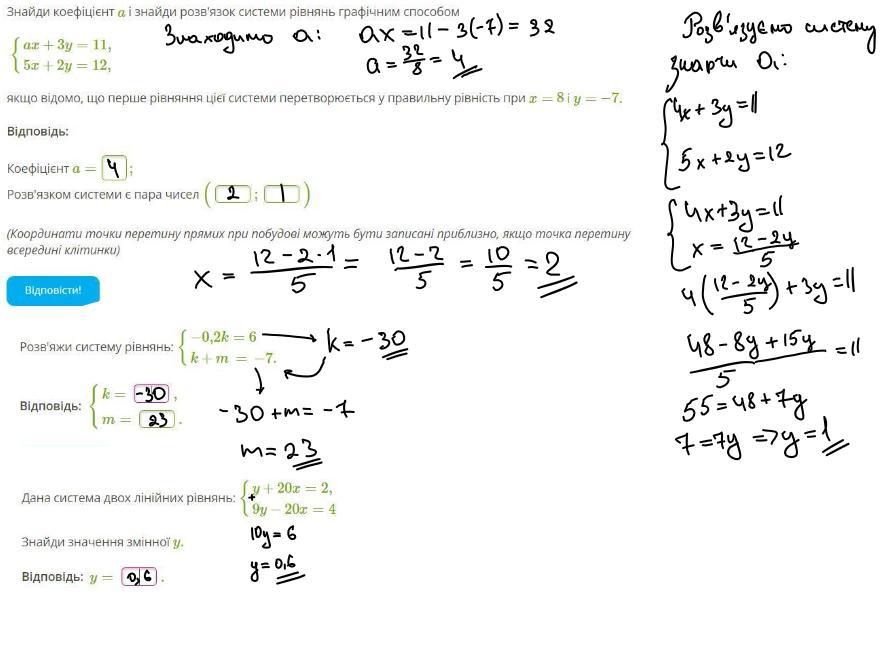 Знайди коефіцієнт a і знайди розв'язок системи рівнянь графічним способом
{ax + 3y = 11,
5x + 2y = 12,
Знаходимо a:
ax = 11 - 3(-7) = 32
a = 32/8 = 4
якщо відомо, що перше рівняння цієї системи перетворюється у правильну рівність при x = 8 і y = −7.
Відповідь:
Коефіцієнт a = 4 ;
Розв'язком системи є пара чисел ( 2 ; 1 )
(Координати точки перетину прямих при побудові можуть бути записані приблизно, якщо точка перетину
всередині клітинки)
x = (12 - 2·1)/5 = (12 - 2)/5 = 10/5 = 2
Відповісти!
Розв'язуємо систему
знаючи a:
{4x + 3y = 11
5x + 2y = 12
{4x + 3y = 11
x = (12 - 2y)/5
4((12 - 2y)/5) + 3y = 11
(48 - 8y + 15y)/5 = 11
55 = 48 + 7y
7 = 7y => y = 1
Розв'яжи систему рівнянь: {−0,2k = 6
k + m = −7.
k = -30
-30 + m = -7
m = 23
Відповідь: {k = -30 ,
m = 23 .
Дана система двох лінійних рівнянь: {y + 20x = 2,
+
9y − 20x = 4
10y = 6
y = 0,6
Знайди значення змінної y.
Відповідь: y = 0,6 .